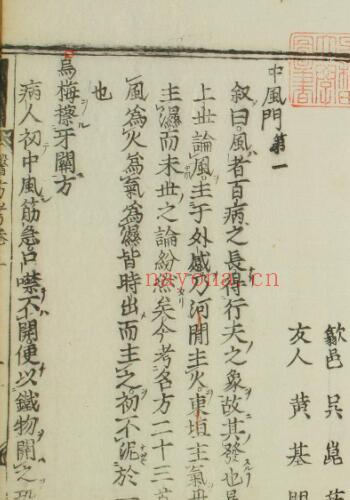 歙邑吳崑
友人黃基明
中風門第一
叙曰風者百病之長得行天之象故其發也
上世論風主于外感乃河間主火東垣主氣
主濕而末世之論紛然矣今考名方二十三
風爲火爲氣爲濕皆時出而主之初不泥於
也
烏梅擦牙關方
病人初中風筋急口噤不開便以鐵物開之恐
nayona.cn